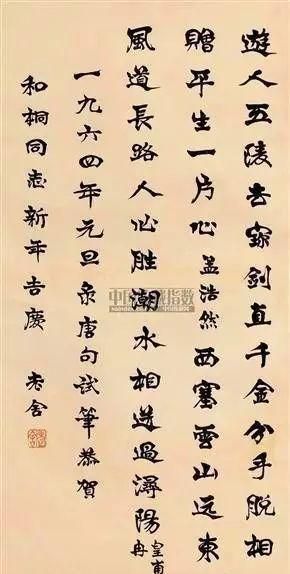 遊人五陵去寶劍直千金分手脫相
贈平生一片心孟浩然西塞雲山远東
風道長路人心勝潮水相送過潯陽皇甫冉
一九六四年元旦录唐句試筆恭賀
和桐同志新年吉慶 老舍